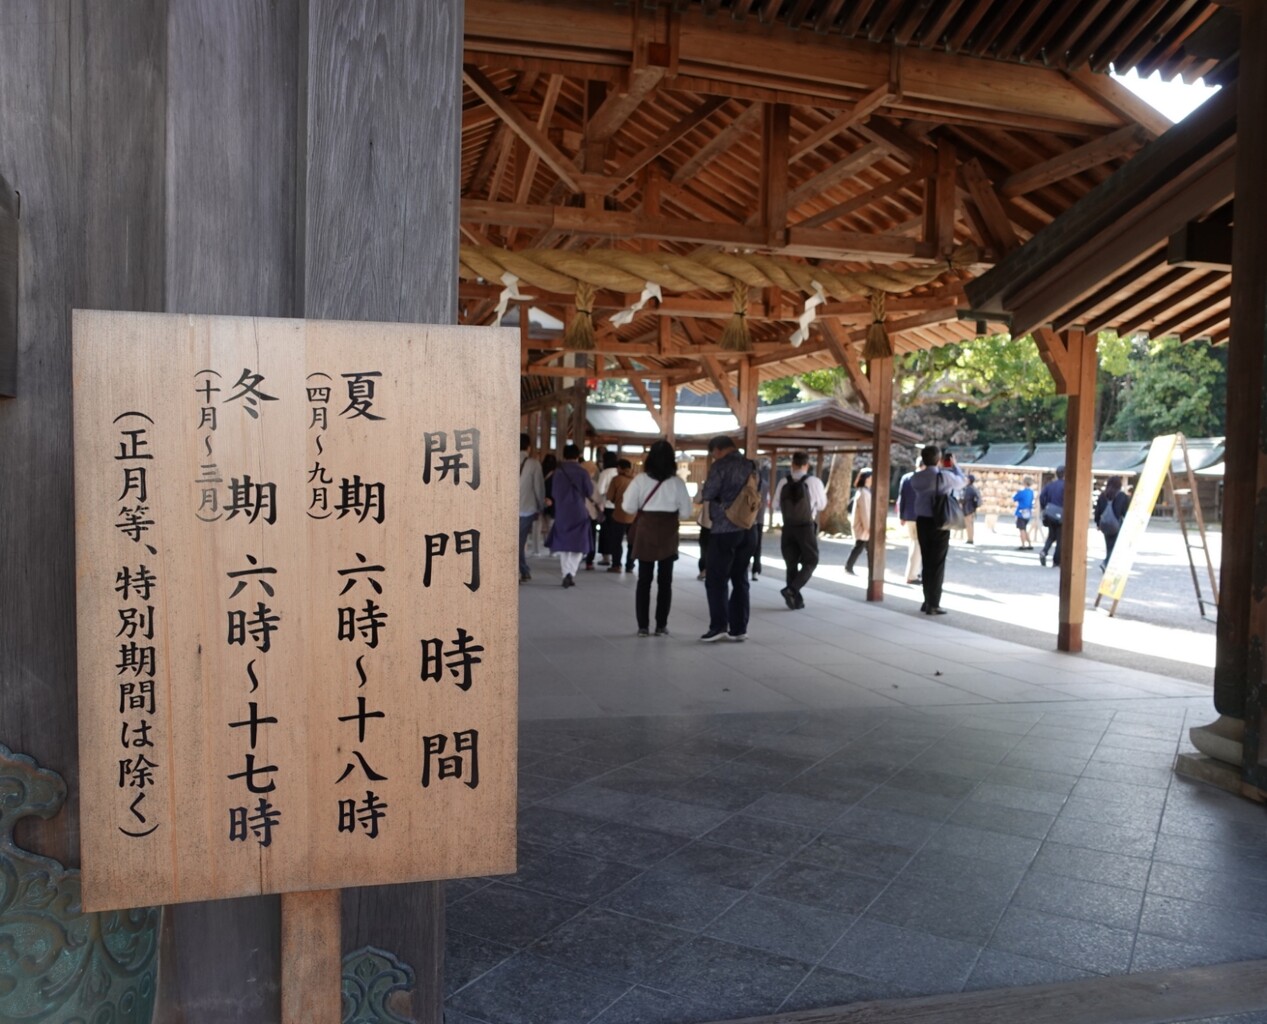 開門時間
夏期 六時~十八時
(四月~九月)
冬期 六時~十七時
(十月~三月)
(正月等、特別期間は除く)